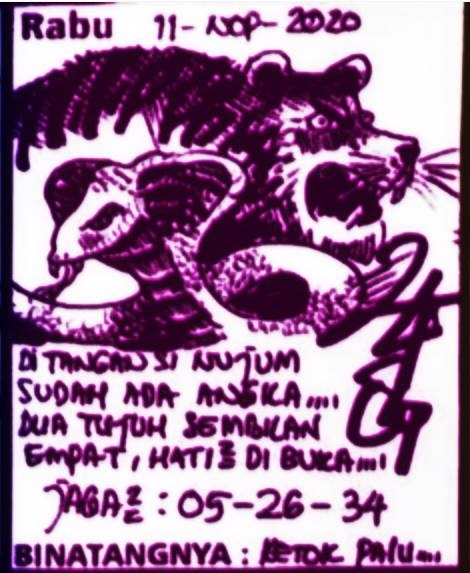 Rabu 11-NOP-2020
DI TANGAN SI NUJUM
SUDAH ADA ANGKA....
DUA TUJUH SEMBILAN
EMPAT, HATI2 DI BUKA....
JAGA2 : 05-26-34
BINATANGNYA : KETOK PALU...